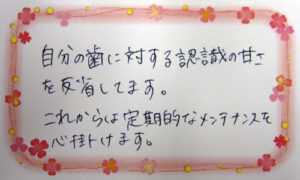 自分の歯に対する認識の甘さ
を反省してます。
これからは定期的なメンテナンスを
心掛けます。